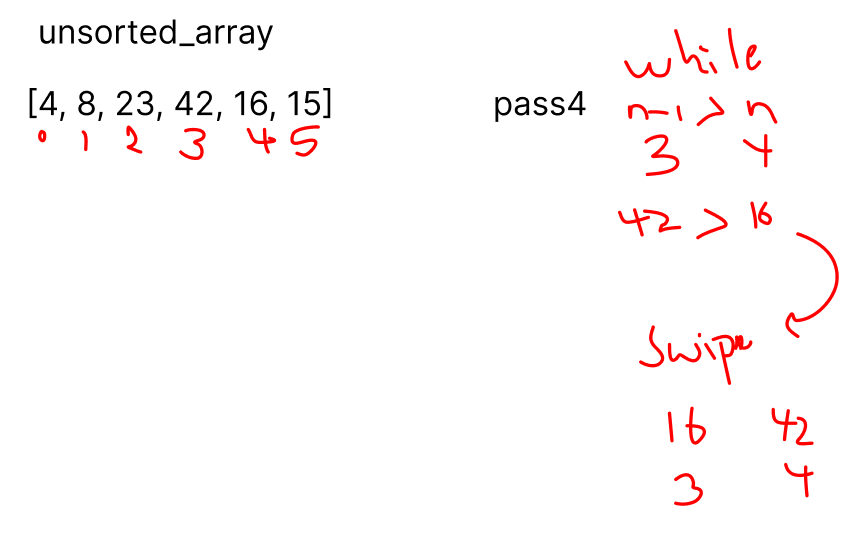 unsorted_array
[4, 8, 23, 42, 16, 15]
0 1 2 3 4 5
pass4
while
n-1 > n
3 4
42 > 16
Swipe
16 42
3 4